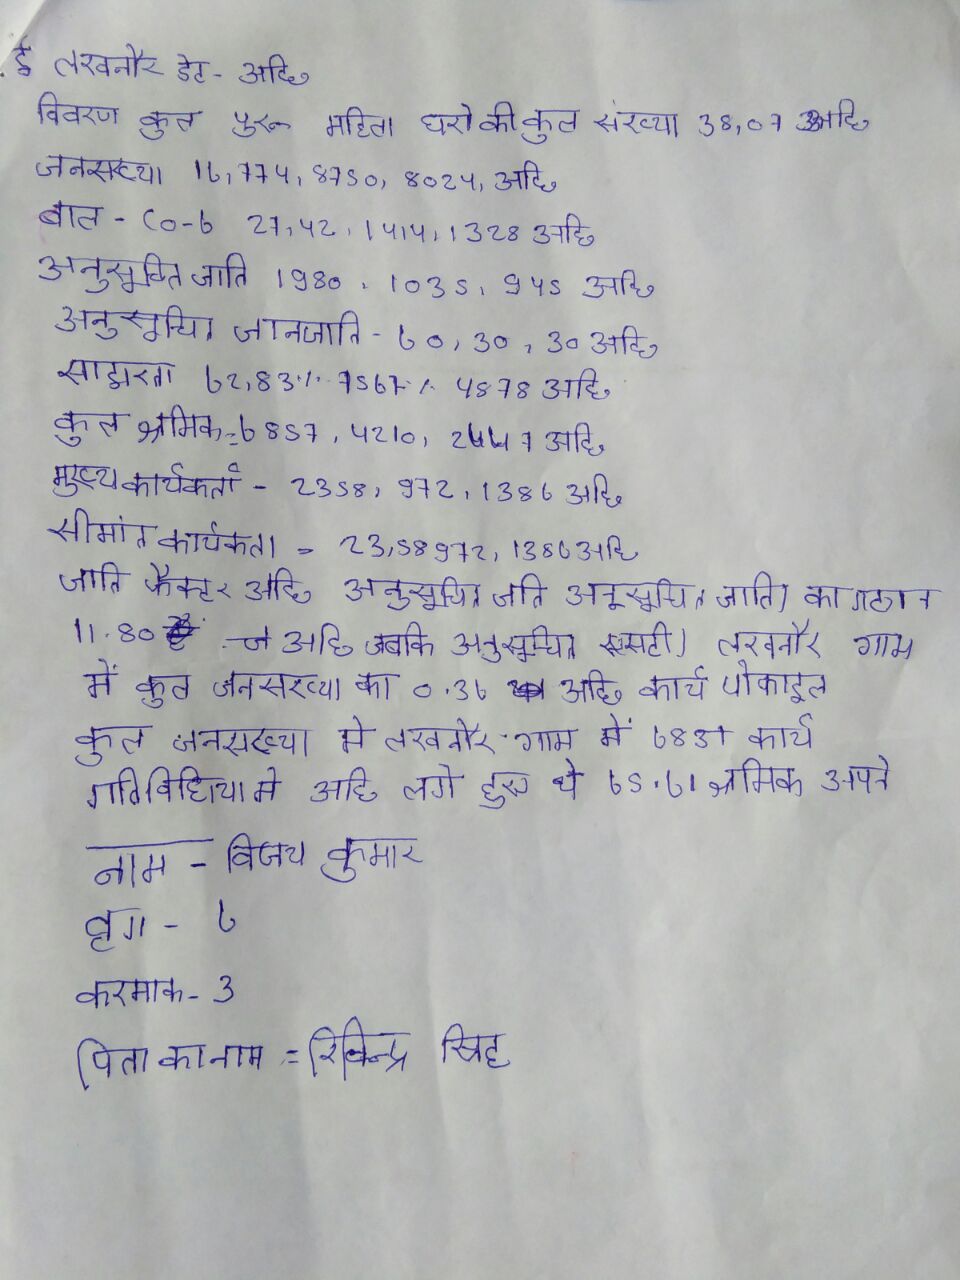 ई लखनौर डेट - अछि
विवरण कुल पुरू महिला घरो की कुल संख्या 38,07 अछि
जनसख्या 16,774, 8750, 8024, अछि
बाल - (0-6 27,42, 1414, 1328 अछि
अनुसूचित जाति 1980, 1035, 945 अछि
अनुसूचित जानजाति - 60, 30, 30 अछि
साक्षरता 62,83% 7567% 4878 अछि
कुल श्रमिक = 6857, 4210, 2647 अछि
मुख्य कार्यकर्ता - 2358, 972, 1386 अछि
सीमांत कार्यकता = 23,58972, 1386 अछि
जाति फैक्टर अछि अनुसूचित जति अनूसूचित जाति) का गठान
11.80 अछि जबकि अनुसूचित एसटी) लखनौर गाम
में कुल जनसख्या का 0.36 अछि कार्य पोफाइल
कुल जनसख्या मे लखनौर गाम में 6857 कार्य
गतिविधियामे अछि लगे हुए थे 65.61 श्रमिक अपने
नाम - विजय कुमार
वृग - 6
करमाक - 3
पिता का नाम = रविन्द्र सिह